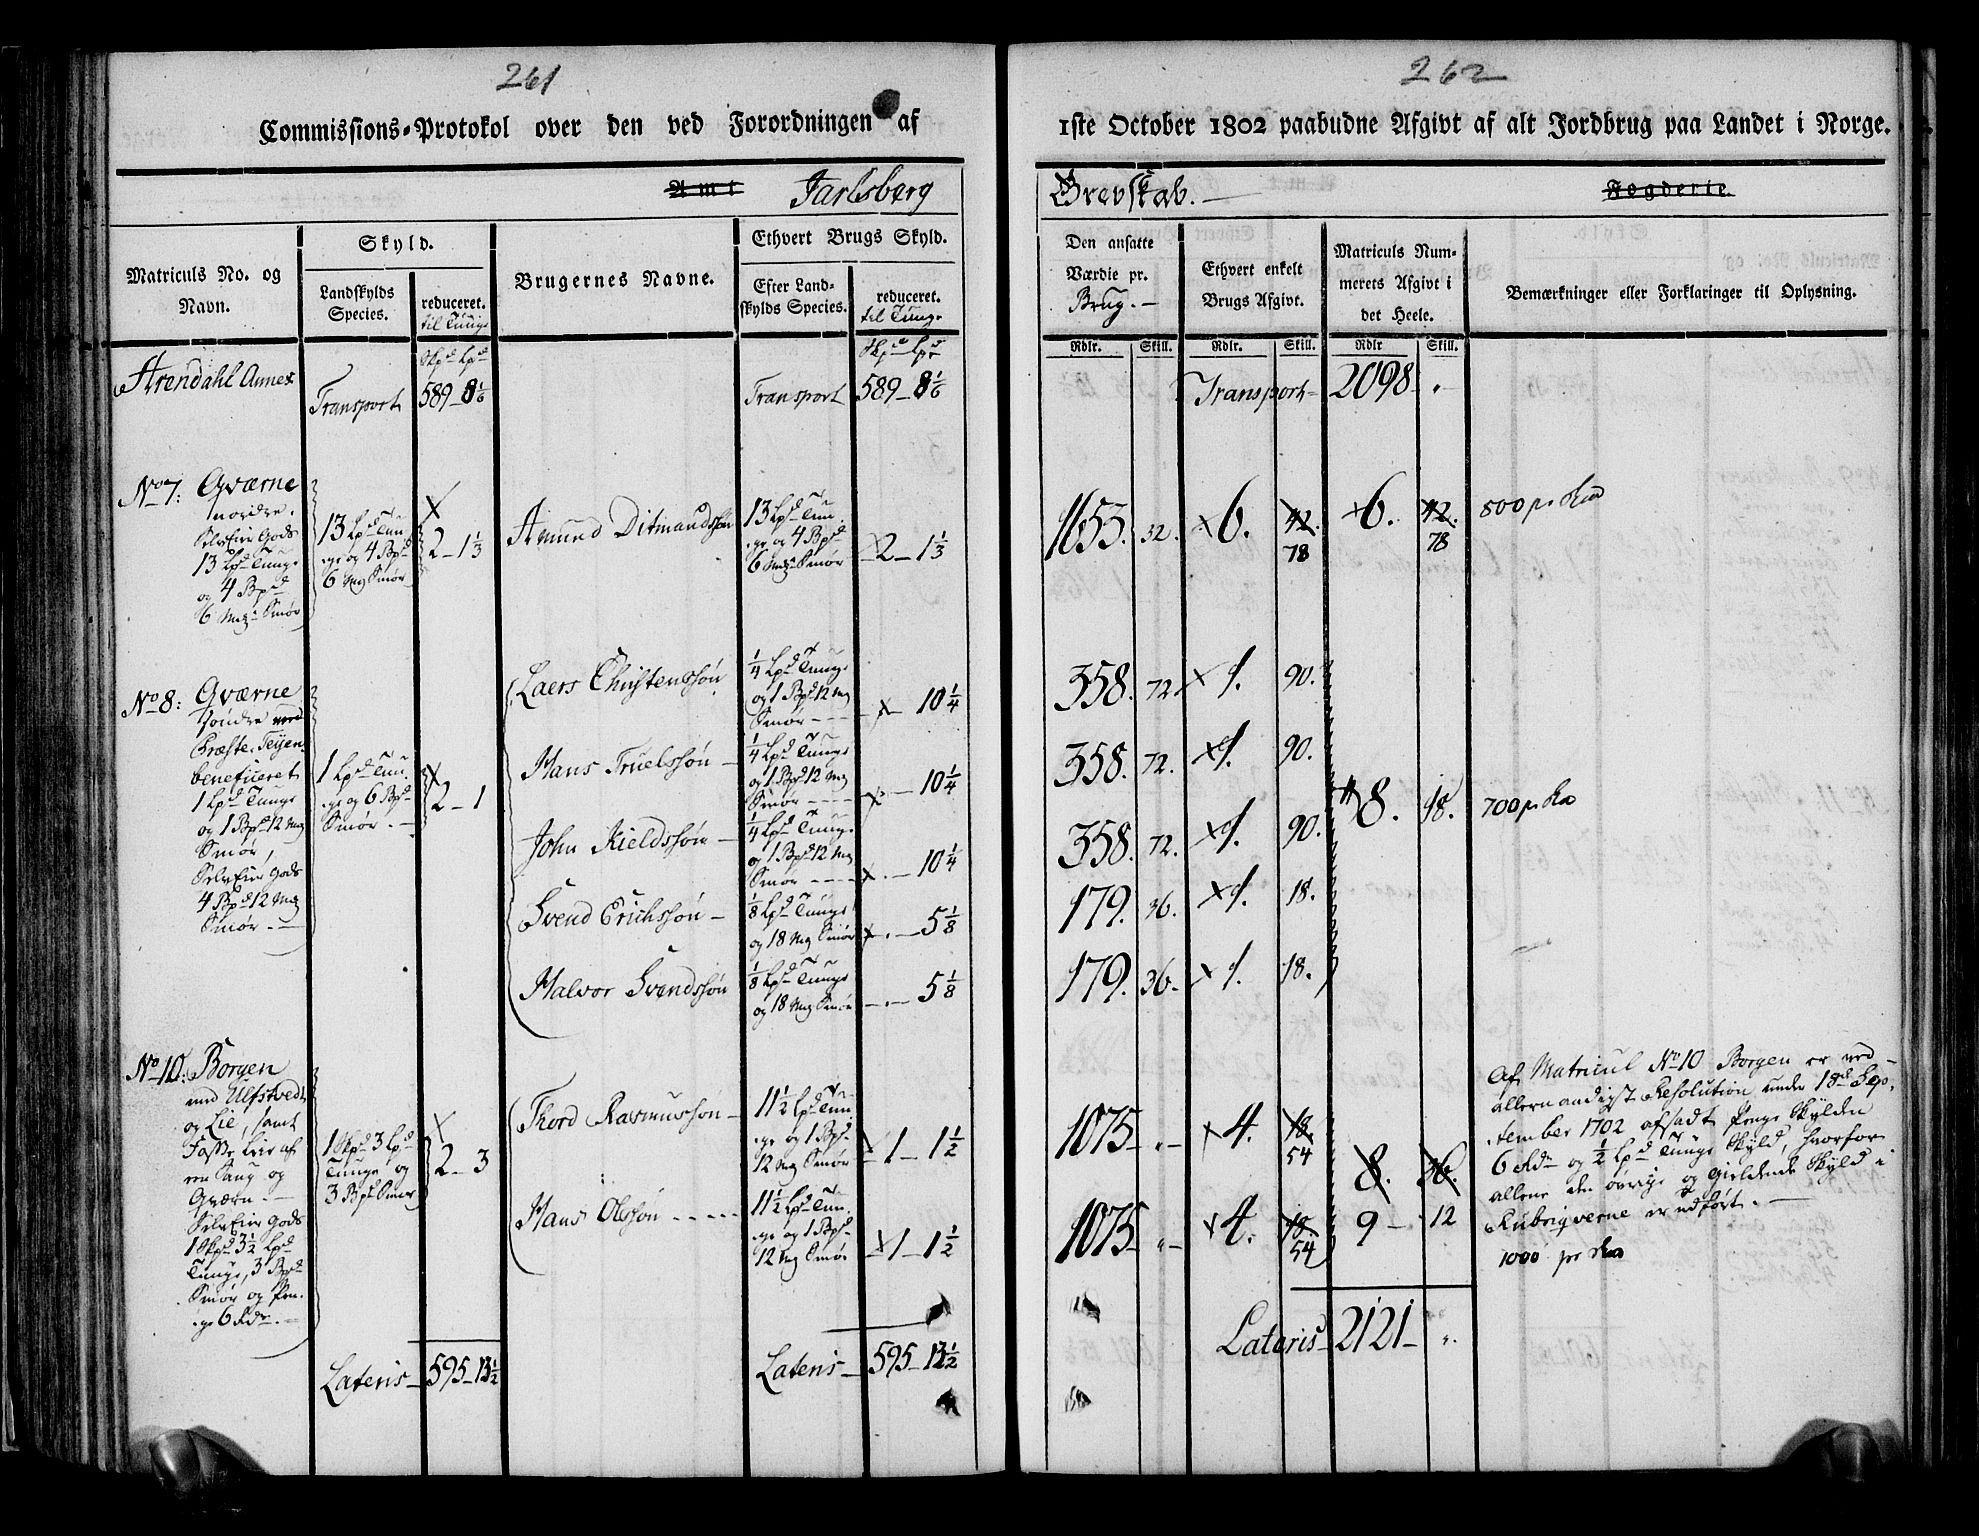 261
Commissions-Protokol over den ved Forordningen af
Amt Jarlsberg
Matriculs No. og
Navn.
Skyld.
Landskylds
Species.
reduceret.
til Tunge
Brugernes Navne.
Ethvert Brugs Skyld.
Efter Land-
skylds Species.
reduceret.
til Tunge
Skpd Lpd
Skpd Lpd
Arendahl Annex
Transport 589 - 8 1/6
Transport 589 - 8 1/6
No 7: Qværne
nordre.
SelvEier Gods
13 Lpd Tunge
og 4 Bpd
6 Mrg Smør
13 Lpd Tun
ge og 4 Bpd
6 Mrg Smør
2 - 1 1/3
Amund Ditmandssøn
13 Lpd Tun
ge og 4 Bpd
6 Mrg Smør
2 - 1 1/3
No 8: Qværne
Søndre med
Præste-Teyen
beneficeret
1 Lpd Tunge
og 1 Bpd 12 Mrg
Smør,
SelvEier Gods
4 Bpd 12 Mrg
Smør. -
1 Lpd Tun
ge og 6 Bpd
Smør. -
2 - 1
Laers Christenssøn
1/4 Lpd Tunge
og 1 Bpd 12 Mrg
Smør - - -
10 1/4
Hans Truelssøn -
1/4 Lpd Tunge
og 1 Bpd 12 Mrg
Smør - - - -
- 10 1/4
John Kieldssøn -
1/4 Lpd Tunge
og 1 Bpd 12 Mrg
Smør - - - -
. - 10 1/4
Svend Erichssøn -
1/8 Lpd Tunge
og 18 Mrg Smør
. - 5 1/8
Halvor Svendssøn
1/8 Lpd Tunge
og 18 Mrg Smør
- . - 5 1/8
No 10: Borgen
med Ulfstvedt
og Lie, samt
Fosse Leie af
en Saug og
Qværn. -
SelvEier Gods
1 Skpd 3 1/2 Lpd
Tunge, 3 Bpd
Smør og Pen
ge 6 Rdr. -
1 Skpd 3 Lpd
Tunge og
3 Bpd Smør
2 - 3
Thord Rasmussøn -
11 1/2 Lpd Tun
ge og 1 Bpd
12 Mrg Smør
- 1 - 1 1/2
Hans Olssøn - - - -
11 1/2 Lpd Tun
ge og 1 Bpd
12 Mrg Smør
1 - 1 1/2
Lateris - 595 - 13 1/2
Lateris - 595 - 13 1/2
262
1ste October 1802 paabudne Afgivt af alt Jordbrug paa Landet i Norge.
Grevskab. - Fogderie.
Den ansatte
Værdie pr.
Brug. -
Ethvert enkelt
Brugs Afgivt.
Matriculs Num-
merets Afgivt i
det Heele.
Bemærkninger eller Forklaringer til Oplysning.
Rdlr. Skill. Rdlr. Skill. Rdlr Skill.
Transport - 2098 - "
1653. 32. 6. 42. 6. 42. 800 pr Rd
78 78
358. 72. 1. 90.
358. 72. 1. 90.
8. 18. 700 pr Rd
358. 72. 1. 90.
179. 36. 1. 18.
179. 36 - 1. 18.
Af Matricul No 10 Borgen er ved
allernaadigst Resolution under 18de Sep
tember 1702 afsadt Penge Skylden
6 Rdr og 1/2 Lpd Tunge Skyld, hvorfor
allene den øvrige og gieldende Skyld i
Rubriqverne er udført. -
1000 pr Rd
1075 - " - 4. 18.
54
8. 36.
1075 - " - 4. 18. 9 - 12
54
Lateris - 2121 - ".